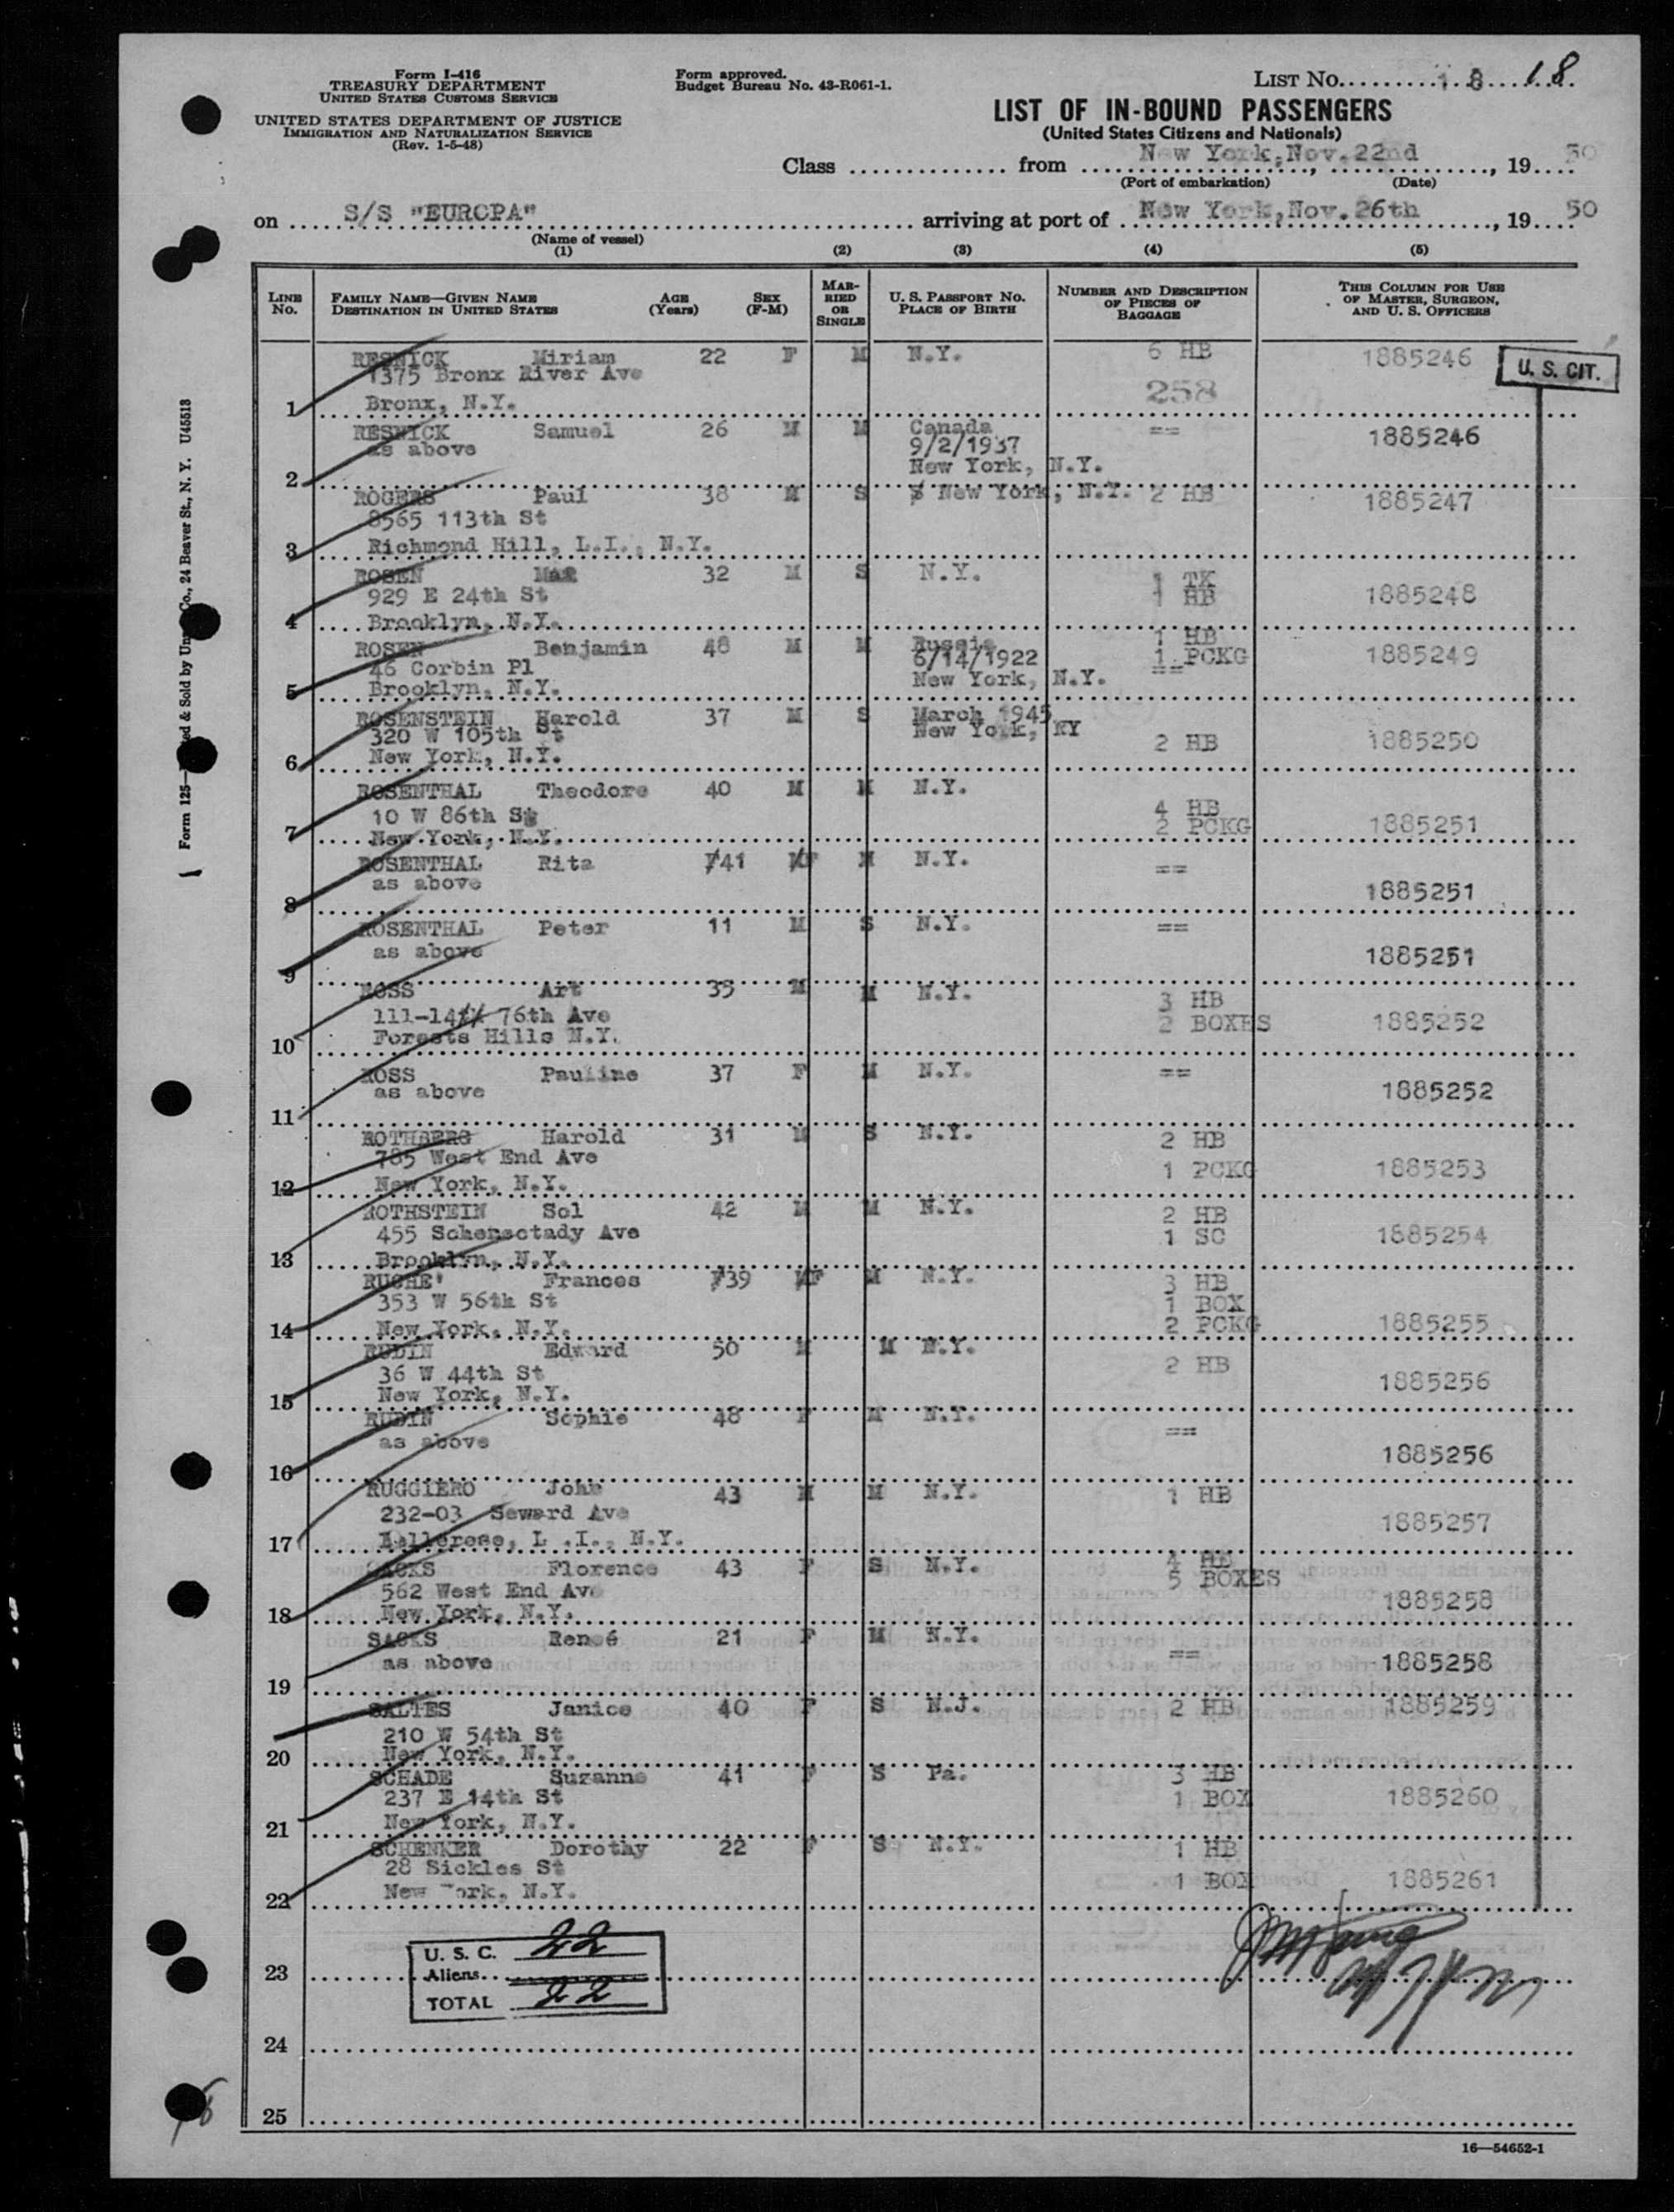 Form I-416
TREASURY DEPARTMENT
UNITED STATES CUSTOMS SERVICE
UNITED STATES DEPARTMENT OF JUSTICE
IMMIGRATION AND NATURALIZATION SERVICE
(Rev. 1-5-48)
Form approved.
Budget Bureau No. 43-R061-1.
LIST No. 18 18
LIST OF IN-BOUND PASSENGERS
(United States Citizens and Nationals)
Class from New York, Nov. 22nd, 19 50
(Port of embarkation) (Date)
on S/S "EUROPA" arriving at port of New York, Nov. 26th, 19 50
(Name of vessel)
(1) (2) (3) (4) (5)
LINE No. FAMILY NAME—GIVEN NAME DESTINATION IN UNITED STATES AGE (Years) SEX (F-M) MARRIED OR SINGLE U. S. PASSPORT No. PLACE OF BIRTH NUMBER AND DESCRIPTION OF PIECES OF BAGGAGE THIS COLUMN FOR USE OF MASTER, SURGEON, AND U. S. OFFICERS
RESNICK Miriam 22 F M N.Y. 6 HB 1885246
U. S. CIT.
1375 Bronx River Ave
258
1 Bronx, N.Y.
RESNICK Samuel 26 M M Canada == 1885246
as above 9/2/1937
2 New York, N.Y.
ROGERS Paul 38 M S New York, N.Y. 2 HB 1885247
8565 113th St
3 Richmond Hill, L.I., N.Y.
ROSEN 32 M S N.Y. 1 TK
929 E 24th St 1 HB 1885248
4 Brooklyn, N.Y.
ROSEN Benjamin 48 M M Russia 1 HB
46 Corbin Pl 6/14/1922 1 PCKG 1885249
5 Brooklyn, N.Y. New York, N.Y. ==
ROSENSTEIN Harold 37 M S March 1945
320 W 105th St New York, NY 2 HB 1885250
6 New York, N.Y.
ROSENTHAL Theodore 40 M M N.Y. 4 HB
10 W 86th St 2 PCKG 1885251
7 New York, N.Y.
ROSENTHAL Rita 41 F M N.Y. ==
as above 1885251
8
ROSENTHAL Peter 11 M S N.Y. ==
as above 1885251
9
ROSS Art 35 M M N.Y. 3 HB
111-14 76th Ave 2 BOXES 1885252
10 Forests Hills N.Y.
ROSS Pauline 37 F M N.Y. ==
as above 1885252
11
ROTHBERG Harold 31 M S N.Y. 2 HB
785 West End Ave 1 PCKG 1885253
12 New York, N.Y.
ROTHSTEIN Sol 42 M M N.Y. 2 HB
455 Schenectady Ave 1 SC 1885254
13 Brooklyn, N.Y.
RUCHE' Frances 39 F M N.Y. 3 HB
353 W 56th St 1 BOX
14 New York, N.Y. 2 PCKG 1885255
RUDIN Edward 50 M M N.Y. 2 HB
36 W 44th St 1885256
15 New York, N.Y.
RUDIN Sophie 48 F M N.Y. ==
as above 1885256
16
RUGGIERO John 43 M M N.Y. 1 HB
232-03 Seward Ave 1885257
17 Bellerose, L .I., N.Y.
SACKS Florence 43 F S N.Y. 4 HB
562 West End Ave 5 BOXES 1885258
18 New York, N.Y.
SACKS Reneé 21 F M N.Y. ==
as above 1885258
19
SALTES Janice 40 F S N.J. 2 HB 1885259
210 W 54th St
20 New York, N.Y.
SCHADE Suzanne 41 F S Pa. 3 HB
237 E 14th St 1 BOX 1885260
21 New York, N.Y.
SCHENKER Dorothy 22 F S N.Y. 1 HB
28 Sickles St 1 BOX 1885261
22 New York, N.Y.
U. S. C. 22
23 Aliens
TOTAL 22
24
25
16—54652-1